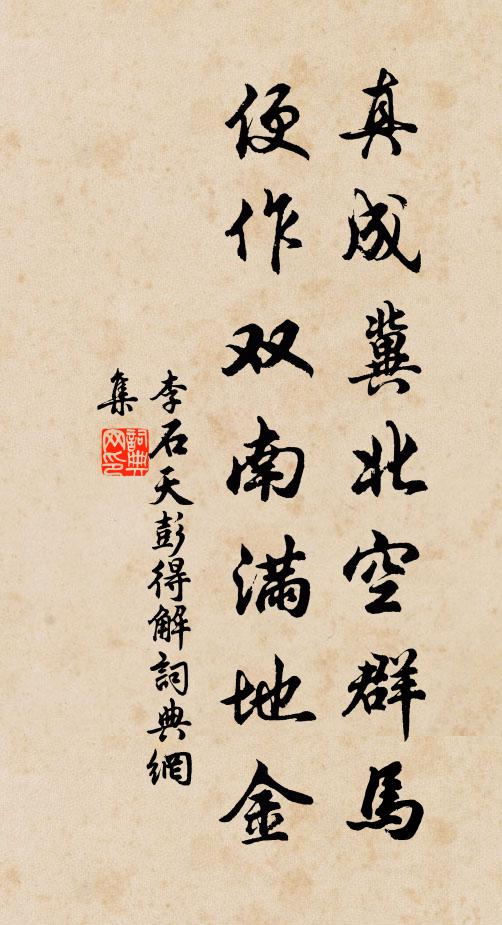 真成冀北空群馬
便作双南满地金
李石天彭得解詞典網
集
詞典
网印